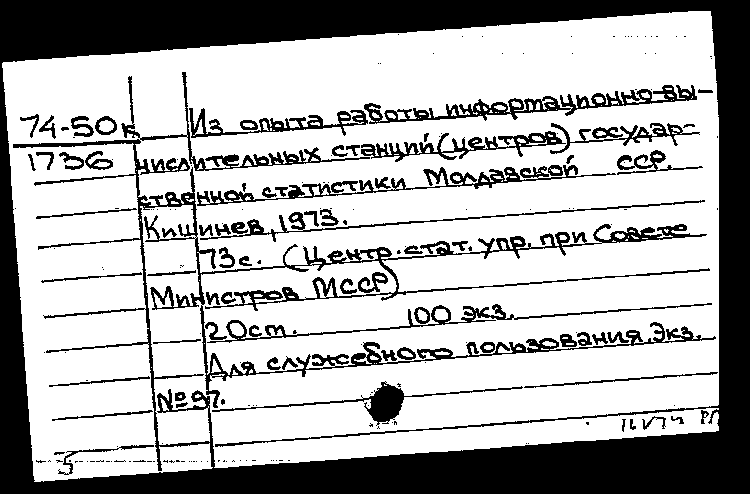 74-50к
1736
Из опыта работы информационно-вы-
числительных станций (центров) государ-
ственной статистики Молдавской ССР.
Кишинев, 1973.
73с. (Центр. стат. упр. при Совете
Министров МССР)
20ст. 100 экз.
Для служебного пользования. Экз.
№97.
5